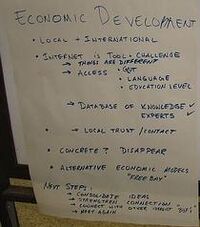 ECONOMIC DEVELOPMENT
• LOCAL + INTERNATIONAL
• INTERNET IS TOOL + CHALLENGE
→ THINGS ARE DIFFERENT
→ ACCESS •
• LANGUAGE
• EDUCATION LEVEL
→ DATABASE OF KNOWLEDGE ✓
EXPERTS ✓
• → LOCAL TRUST / CONTACT
• CONCRETE? DISAPPEAR
• ALTERNATIVE ECONOMIC MODELS
"FREEBAY"
NEXT STEPS:
→ CONSOLIDATE IDEAS
→ STRENGTHEN CONNECTION
→ CONNECT WITH OTHER
→ MEET AGAIN